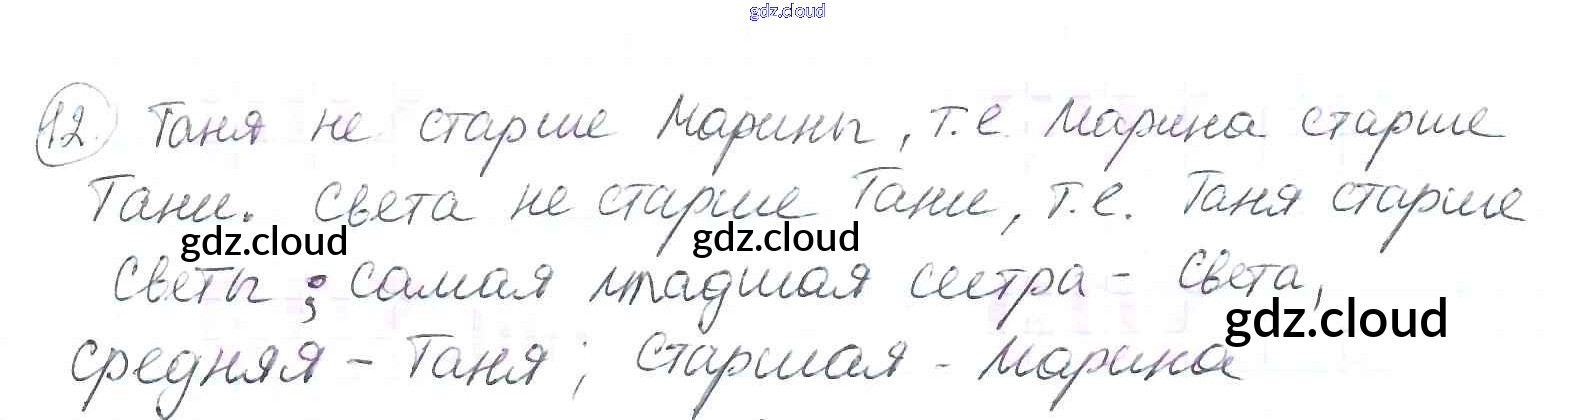 gdz.cloud
12. Таня не старше Марины, т.е. Марина старше
Тани. Света не старше Тани, т.е. Таня старше
gdz.cloud gdz.cloud
Светы; самая младшая сестра - Света,
gdz.cloud
средняя - Таня; Старшая - Марина